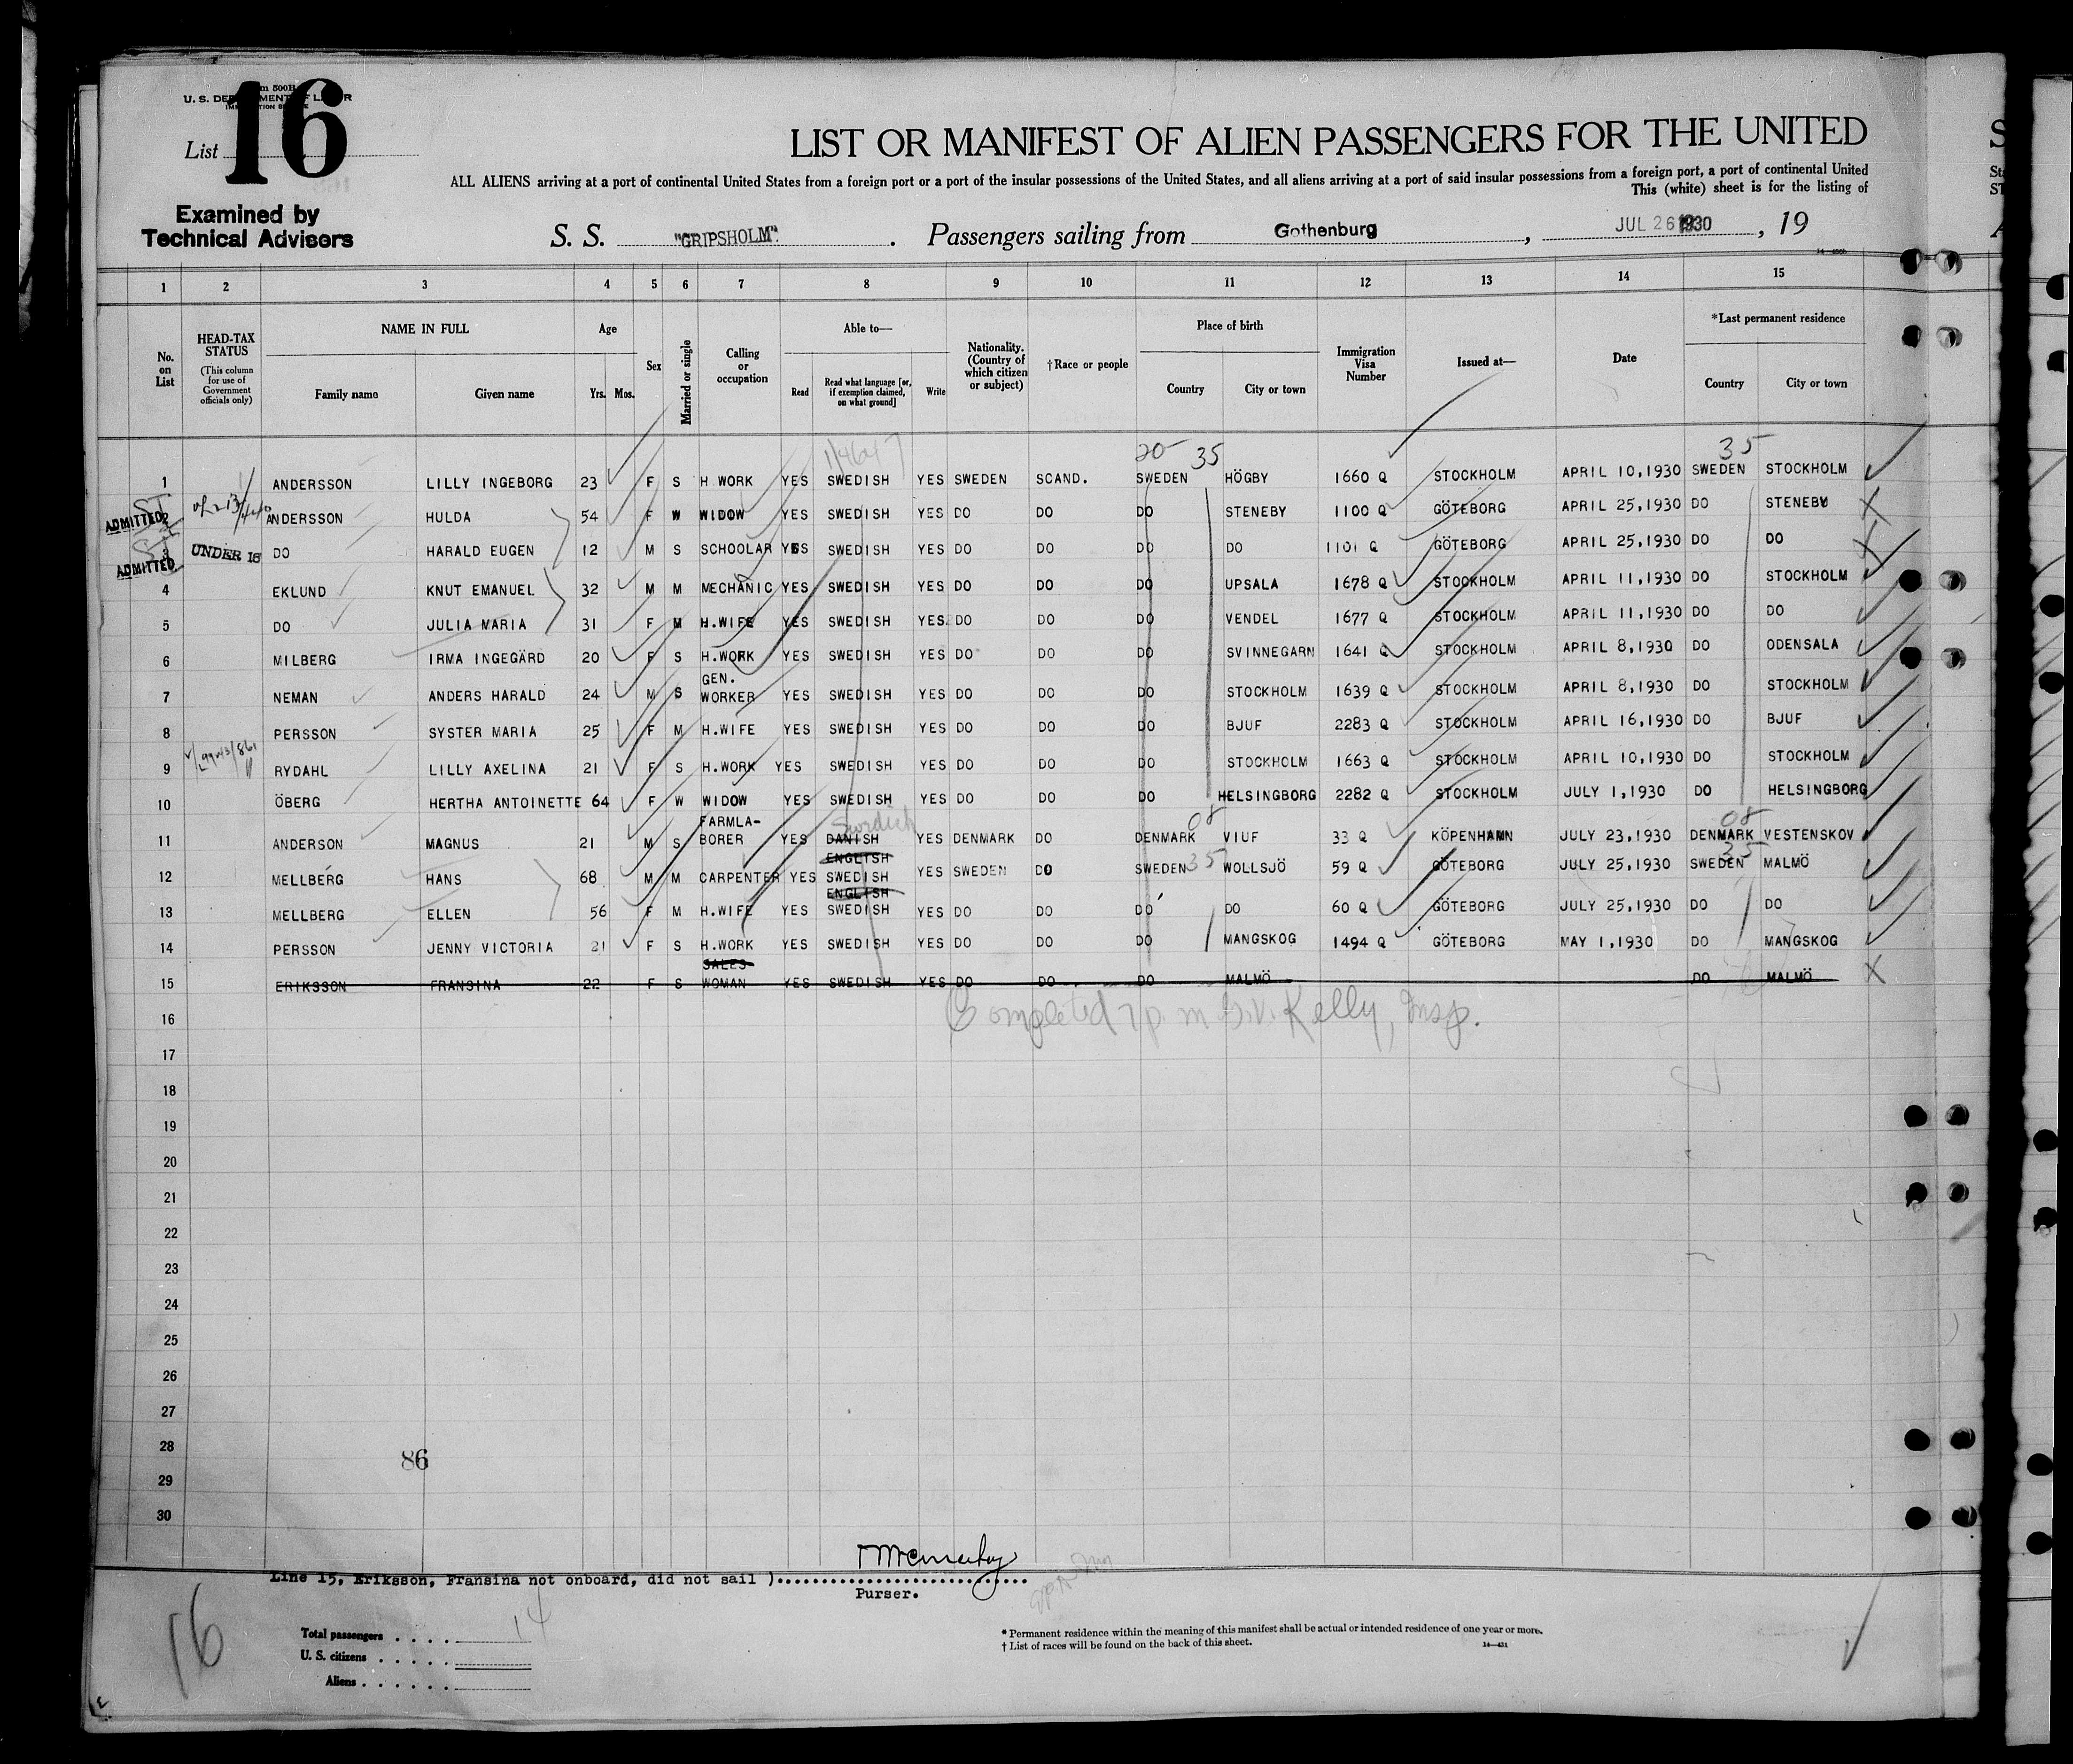 16
Form 500B
U. S. DEPARTMENT OF LABOR
IMMIGRATION SERVICE
List
LIST OR MANIFEST OF ALIEN PASSENGERS FOR THE UNITED
ALL ALIENS arriving at a port of continental United States from a foreign port or a port of the insular possessions of the United States, and all aliens arriving at a port of said insular possessions from a foreign port, a port of continental United
This (white) sheet is for the listing of
Examined by
Technical Advisers
S. S. "GRIPSHOLM". Passengers sailing from Gothenburg, JUL 26 1930, 19
1 2 3 4 5 6 7 8 9 10 11 12 13 14 15
No. on List
HEAD-TAX STATUS
(This column for use of Government officials only)
NAME IN FULL
Family name Given name
Age
Yrs. Mos.
Sex
Married or single
Calling or occupation
Able to—
Read Read what language [or, if exemption claimed, on what ground] Write
Nationality. (Country of which citizen or subject)
†Race or people
Place of birth
Country City or town
Immigration Visa Number
Issued at—
Date
*Last permanent residence
Country City or town
20 35 35
1 ANDERSSON LILLY INGEBORG 23 F S H.WORK YES SWEDISH YES SWEDEN SCAND. SWEDEN HÖGBY 1660 Q STOCKHOLM APRIL 10,1930 SWEDEN STOCKHOLM
ADMITTED 2 ANDERSSON HULDA 54 F W WIDOW YES SWEDISH YES DO DO DO STENEBY 1100 Q GÖTEBORG APRIL 25,1930 DO STENEBY
ADMITTED 3 UNDER 16 DO HARALD EUGEN 12 M S SCHOOLAR YES SWEDISH YES DO DO DO DO 1101 Q GÖTEBORG APRIL 25,1930 DO DO
4 EKLUND KNUT EMANUEL 32 M M MECHANIC YES SWEDISH YES DO DO DO UPSALA 1678 Q STOCKHOLM APRIL 11,1930 DO STOCKHOLM
5 DO JULIA MARIA 31 F M H.WIFE YES SWEDISH YES. DO DO DO VENDEL 1677 Q STOCKHOLM APRIL 11,1930 DO DO
6 MILBERG IRMA INGEGÄRD 20 F S H.WORK YES SWEDISH YES DO DO DO SVINNEGARN 1641 Q STOCKHOLM APRIL 8,1930 DO ODENSALA
7 NEMAN ANDERS HARALD 24 M S GEN. WORKER YES SWEDISH YES DO DO DO STOCKHOLM 1639 Q STOCKHOLM APRIL 8,1930 DO STOCKHOLM
8 PERSSON SYSTER MARIA 25 F M H.WIFE YES SWEDISH YES DO DO DO BJUF 2283 Q STOCKHOLM APRIL 16,1930 DO BJUF
9 RYDAHL LILLY AXELINA 21 F S H.WORK YES SWEDISH YES DO DO DO STOCKHOLM 1663 Q STOCKHOLM APRIL 10,1930 DO STOCKHOLM
10 ÖBERG HERTHA ANTOINETTE 64 F W WIDOW YES SWEDISH YES DO DO DO HELSINGBORG 2282 Q STOCKHOLM JULY 1,1930 DO HELSINGBORG
Swedish 08 08
11 ANDERSON MAGNUS 21 M S FARMLA-BORER YES DANISH YES DENMARK DO DENMARK VIUF 33 Q KÖPENHAMN JULY 23,1930 DENMARK VESTENSKOV
35 35
12 MELLBERG HANS 68 M M CARPENTER YES ENGLISH SWEDISH YES SWEDEN DO SWEDEN WOLLSJÖ 59 Q GÖTEBORG JULY 25,1930 SWEDEN MALMÖ
13 MELLBERG ELLEN 56 F M H.WIFE YES ENGLISH SWEDISH YES DO DO DO DO 60 Q GÖTEBORG JULY 25,1930 DO DO
14 PERSSON JENNY VICTORIA 21 F S H.WORK YES SWEDISH YES DO DO DO MANGSKOG 1494 Q GÖTEBORG MAY 1,1930 DO MANGSKOG
15 ERIKSSON FRANSINA 22 F S SALES WOMAN YES SWEDISH YES DO DO DO MALMÖ DO MALMÖ
16 Completed 7 p. m Kelly, Insp.
17
18
19
20
21
22
23
24
25
26
27
28
86
29
30
Line 15, Eriksson, Fransina not onboard, did not sail )..............................
Purser.
16
Total passengers . . . . 14
U. S. citizens . . . . .
Aliens . . . . . .
* Permanent residence within the meaning of this manifest shall be actual or intended residence of one year or more.
† List of races will be found on the back of this sheet.